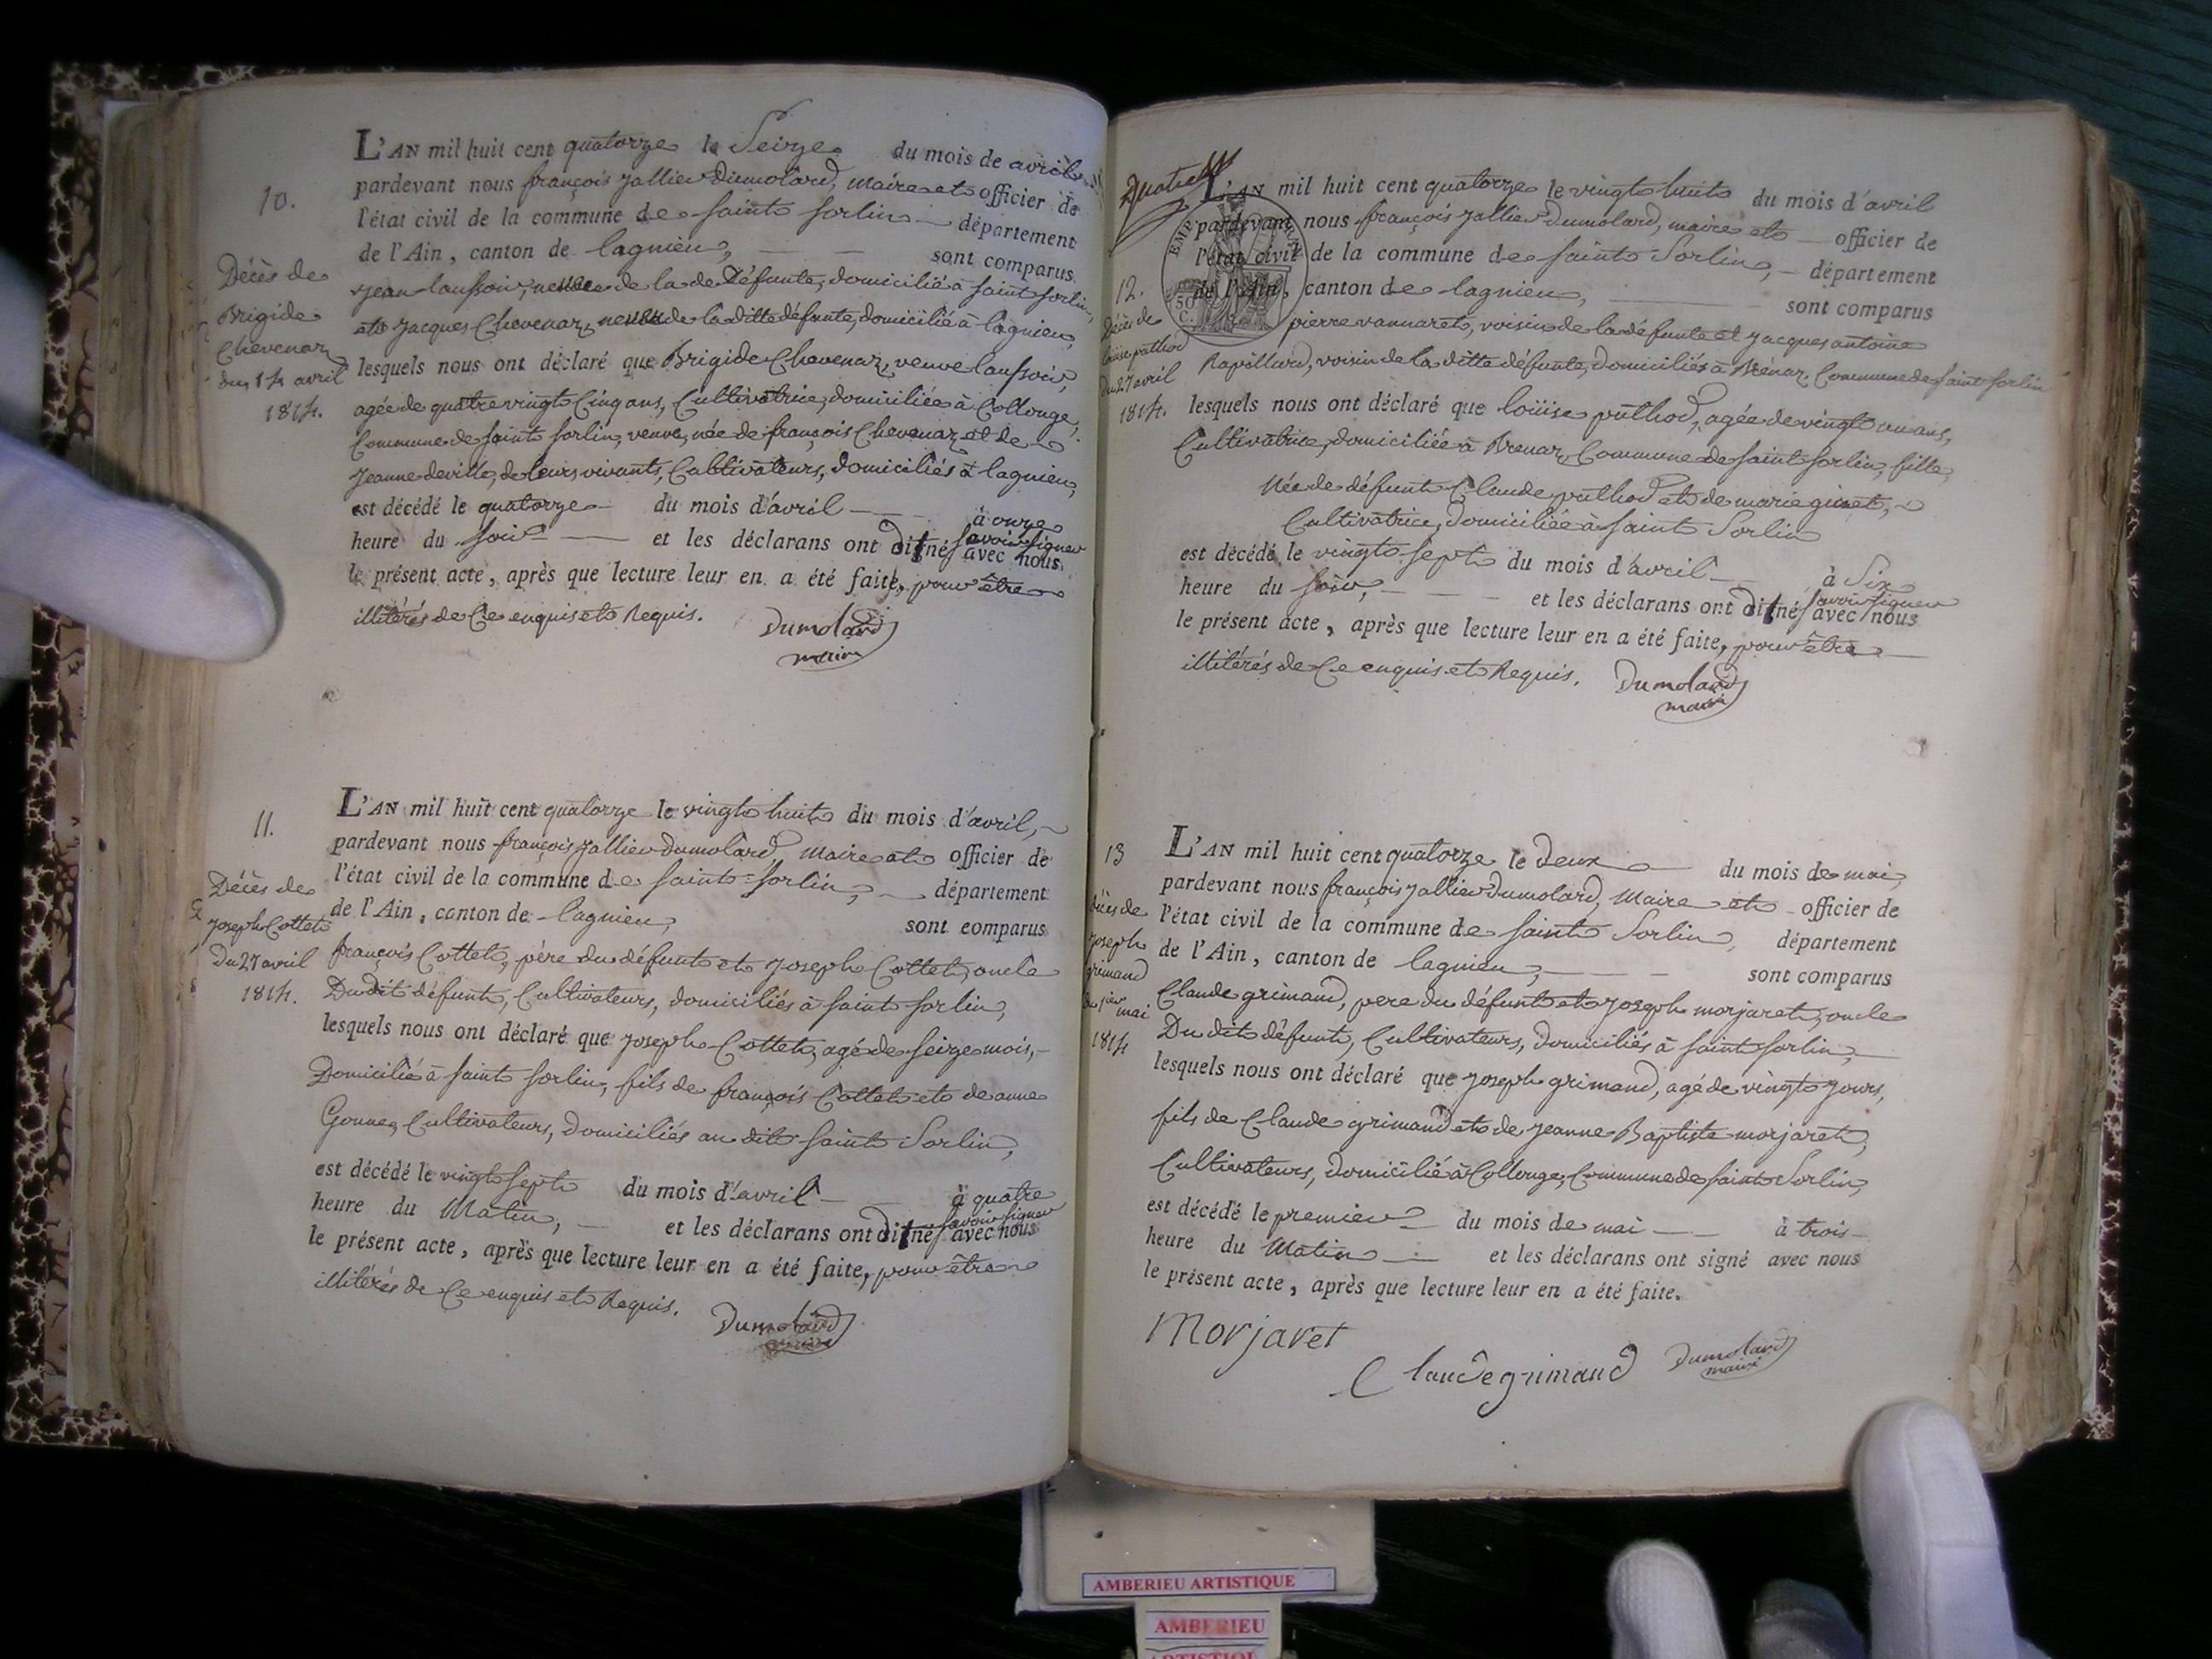 10.
Décès de
Brigide
Chevenaz
du 14 avril
1814.
L'AN mil huit cent quatorze le Seize du mois de avril
pardevant nous françois Jallier Dumolard, Maire et officier de
l'état civil de la commune de saint Sorlin département
de l'Ain, canton de lagnieu, sont comparus
Jean laussoir, neveu de la de Défunte, domicilié à saint Sorlin,
et Jacques Chevenaz, neveu de la ditte défunte, domicilié à lagnieu,
lesquels nous ont déclaré que Brigide Chevenaz, veuve laussoir,
agée de quatre vingt Cinq ans, Cultivatrice, domiciliée à Collonge,
Commune de saint Sorlin, veuve, née de françois Chevenaz et de
Jeanne deville, de leurs vivants, Cultivateurs, domiciliés à lagnieu,
est décédé le quatorze du mois d'avril à onze
heure du soir et les déclarans ont dit né savoir signer avec nous
le présent acte, après que lecture leur en a été faite, pour être
illitérés de Ce enquis et Requis. Dumolard
maire
11.
Décès de
Joseph Cottet
Du 27 avril
1814.
L'AN mil huit cent quatorze le vingt huit du mois d'avril,
pardevant nous françois Jallier Dumolard, Maire et officier de
l'état civil de la commune de saint Sorlin, département
de l'Ain, canton de lagnieu, sont comparus
françois Cottet, père du défunt et Joseph Cottet, oncle
Du dit défunt, Cultivateurs, domiciliés à saint Sorlin,
lesquels nous ont déclaré que Joseph Cottet, agé de seize mois,
Domicilié à saint Sorlin, fils de françois Cottet et de anne
Gonne, Cultivateurs, Domiciliés au dit saint Sorlin,
est décédé le vingt sept du mois d'avril à quatre
heure du Matin, et les déclarans ont dit né savoir signer avec nous
le présent acte, après que lecture leur en a été faite, pour être
illitérés de Ce enquis et Requis. Dumolard
maire
EMP
50
C.
12.
Décès de
louise puthod
Du 27 avril
1814.
L'AN mil huit cent quatorze le vingt huit du mois d'avril
pardevant nous françois Jallier Dumolard, maire et officier de
l'état civil de la commune de saint Sorlin, département
de l'Ain, canton de lagnieu, sont comparus
pierre vannaret, voisin de la défunte et Jacques antoine
Rapillard, voisin de la ditte défunte, domiciliés à Brénaz, Commune de saint Sorlin
lesquels nous ont déclaré que loüise puthod, agée de vingt un ans,
Cultivatrice, domiciliée à Brenaz, Commune de saint Sorlin, fille
Née de défunt Claude puthod et de marie ginet,
Cultivatrice, domiciliée à saint Sorlin
est décédé le vingt sept du mois d'avril à Six
heure du soir, et les déclarans ont dit né savoir signer avec nous
le présent acte, après que lecture leur en a été faite, pour être
illitérés de Ce enquis et Requis. Dumolard
maire
13
Décès de
Joseph
grimand
du 1er mai
1814
L'AN mil huit cent quatorze le deux du mois de mai,
pardevant nous françois Jallier Dumolard, Maire et officier de
l'état civil de la commune de saint Sorlin, département
de l'Ain, canton de lagnieu, sont comparus
Claude grimand, pere du défunt et Joseph morjaret, oncle
Du dit défunt, Cultivateurs, Domiciliés à saint Sorlin,
lesquels nous ont déclaré que Joseph grimand, agé de vingt Jours,
fils de Claude grimand et de Jeanne Baptiste morjaret,
Cultivateurs, domicilié à Collonge, Commune de saint Sorlin,
est décédé le premier du mois de mai à trois
heure du Matin et les déclarans ont signé avec nous
le présent acte, après que lecture leur en a été faite.
Morjaret
Claude grimand
Dumolard
maire
AMBERIEU ARTISTIQUE
AMBERIEU
ARTISTIQUE